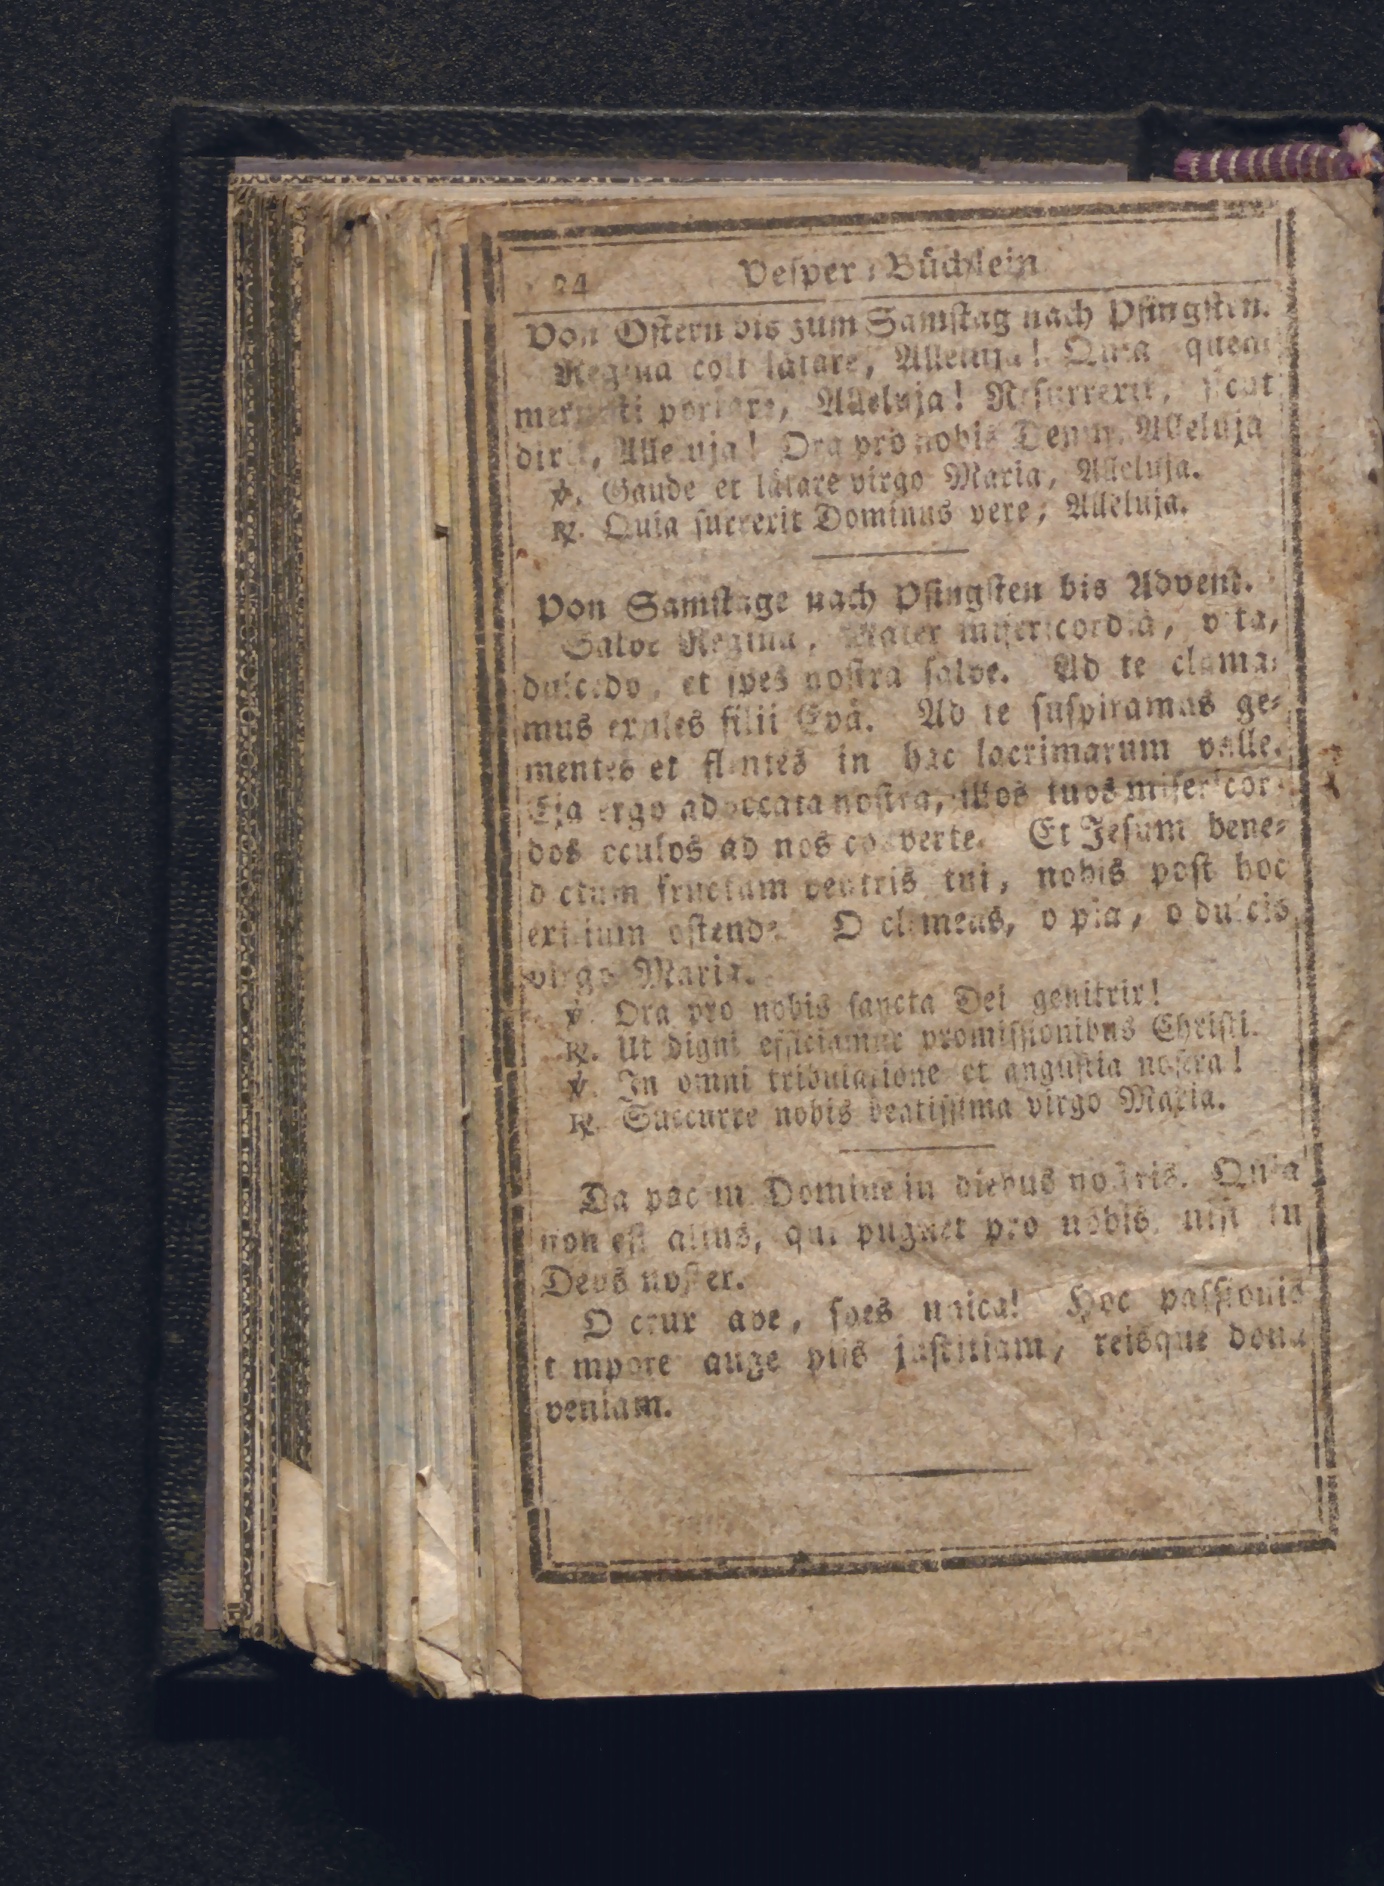 24 Vesper-Büchlein
Von Ostern bis zum Samstag nach Pfingsten.
Regina coli lätare, Alleluja! Quia quem
meruisti portare, Alleluja! Resurrexit, sicut
dixit, Alleluja! Ora pro nobis Deum, Alleluja
℣. Gaude et lätare virgo Maria, Alleluja.
℟. Quia surrexit Dominus vere, Alleluja.
Von Samstage nach Pfingsten bis Advent.
Salve Regina, Mater misericordiä, vita,
dulcedo, et spes nostra salve. Ad te clama-
mus exules filii Evä. Ad te suspiramus ge-
mentes et flentes in hac lacrimarum valle.
Eja ergo advocata nostra, illos tuos misericor-
dos oculos ad nos converte. Et Jesum bene-
dictum fructum ventris tui, nobis post hoc
exilium ostende. O clemens, o pia, o dulcis
virgo Maria.
℣. Ora pro nobis sancta Dei genitrix!
℟. Ut digni efficiamur promissionibus Christi.
℣. In omni tribulatione et angustia nostra!
℟. Succurre nobis beatissima virgo Maria.
Da pacem Domine in diebus nostris. Quia
non est alius, qui pugnet pro nobis, nisi tu
Deus noster.
O crux ave, spes unica! Hoc passionis
tempore auge piis justitiam, reisque dona
veniam.